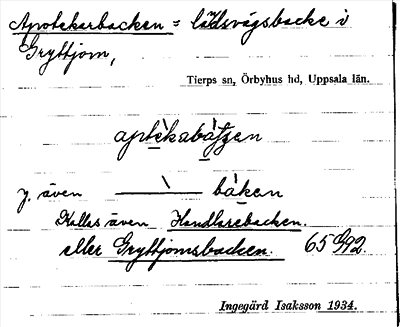 Apotekarbacken = lādsvägsbacke i
Gryttjom,
Tierps sn, Örbyhus hd, Uppsala län.
aptèkabàtʃen
y. även ——\—— bàken
Kallas även Handlarebacken.
eller Gryttjomsbacken. 65 G/92.
Ingegärd Isaksson 1934.